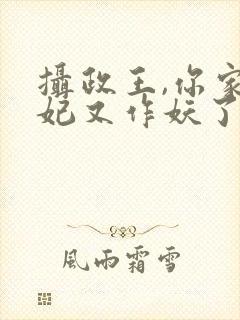 攝政王,你家
妃又作妖了
風雨霜雪